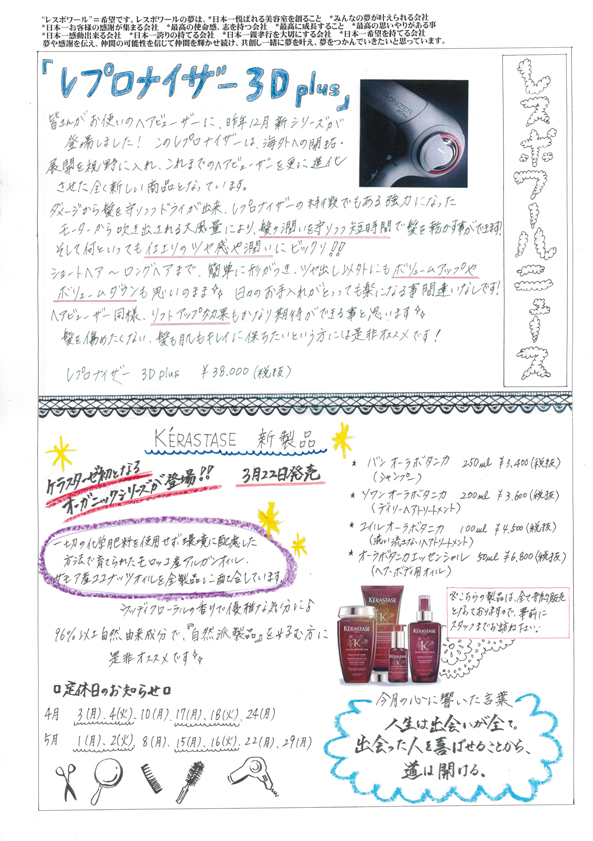 "レスポワール"=希望です。レスポワールの夢は、*日本一悦ばれる美容室を創ること *みんなの夢が叶えられる会社
*日本一お客様の感謝が集まる会社 *最高の使命感、志を持つ会社 *最高に成長すること *最高の思いやりがある事
*日本一感動出来る会社 *日本一誇りの持てる会社 *日本一親孝行を大切にする会社 *日本一希望を持てる会社
夢や感謝を伝え、仲間の可能性を信じて仲間を輝かせ続け、共創し一緒に夢を叶え、夢をつかんでいきたいと思っています。
「レプロナイザー3D plus」
レスポワールニュース
皆さんがお使いのヘアビューザーに、昨年12月新シリーズが
登場しました! このレプロナイザーは、海外への開拓・
展開を視野に入れ、これまでのヘアビューザーを更に進化
させた全く新しい商品となっています。
ダメージから髪を守りつつドライが出来、レプロナイザーの特徴でもある強力になった
モーターから吹き出される大風量により、髪の潤いを守りつつ短時間で髪を乾かす事ができます!
そして何といっても仕上りのツヤ感や潤いにビックリ!!
ショートヘア〜ロングヘアまで、簡単に形がつき、ツヤ出し以外にもボリュームアップや
ボリュームダウンも思いのまま 日々のお手入れがとっても楽になる事間違いなしです!
ヘアビューザー同様、リフトアップ効果もかなり期待ができる事と思います
髪を傷めたくない、髪も肌もキレイに保ちたいという方には是非オススメです!
レプロナイザー 3D plus ¥38.000(税抜)
KÉRASTASE 新製品
ケラスターゼ初となる
オーガニックシリーズが登場!!
3月22日発売
一切の化学肥料を使用せず環境に配慮した
方法で育てられたモロッコ産アルガンオイル、
サモア産ココナッツオイルを全製品に配合しています。
ウッディフローラルの香りで優雅な気分に♪
96%以上自然由来成分で、『自然派製品』を好む方に
是非オススメです
* バン オーラボタニカ 250ml ¥3,400(税抜)
(シャンプー)
* ソワン オーラボタニカ 200ml ¥3,600(税抜)
(デイリーヘアトリートメント)
* ユイル オーラボタニカ 100ml ¥4,500(税抜)
(洗い流さないヘアトリートメント)
* オーラボタニカエッセンシャル 50ml ¥6,800(税抜)
(ヘアーボディ用オイル)
※こちらの製品は、全て予約販売
となっておりますので、事前に
スタッフまでお訪ね下さい。
KÉRASTASE
KÉRASTASE
KÉRASTASE
定休日のお知らせ
4月 3(月)、4(火)、10(月)、17(月)、18(火)、24(月)
5月 1(月)、2(火)、8(月)、15(月)、16(火)、22(月)、29(月)
今月の心に響いた言葉
人生は出会いが全て。
出会った人を喜ばせることから、
道は開ける。